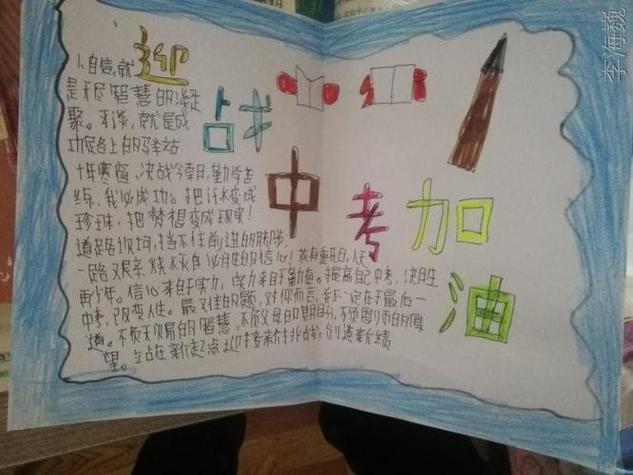 迎
战
中
考
加
油
1.自信,就
是积尽智慧的凝
聚。平淡,就是成
功路上的驿站
十年寒窗,决战今朝,勤学苦
练,我必成功。把汗水变成
珍珠,把梦想变成现实!
道路坎坷,挡不住前进的脚步,
一路艰辛,烧不自必胜的信心!
再少年。信心来自于实力,实力来自于勤奋。提高自己中考,决胜
中考,改变人生。最佳的题,对你而言,
道。不负天赐的智慧,不负父母的期盼,不负恩师的厚
望。立占在新起点迎接新挑战,创造新绩
李海巍